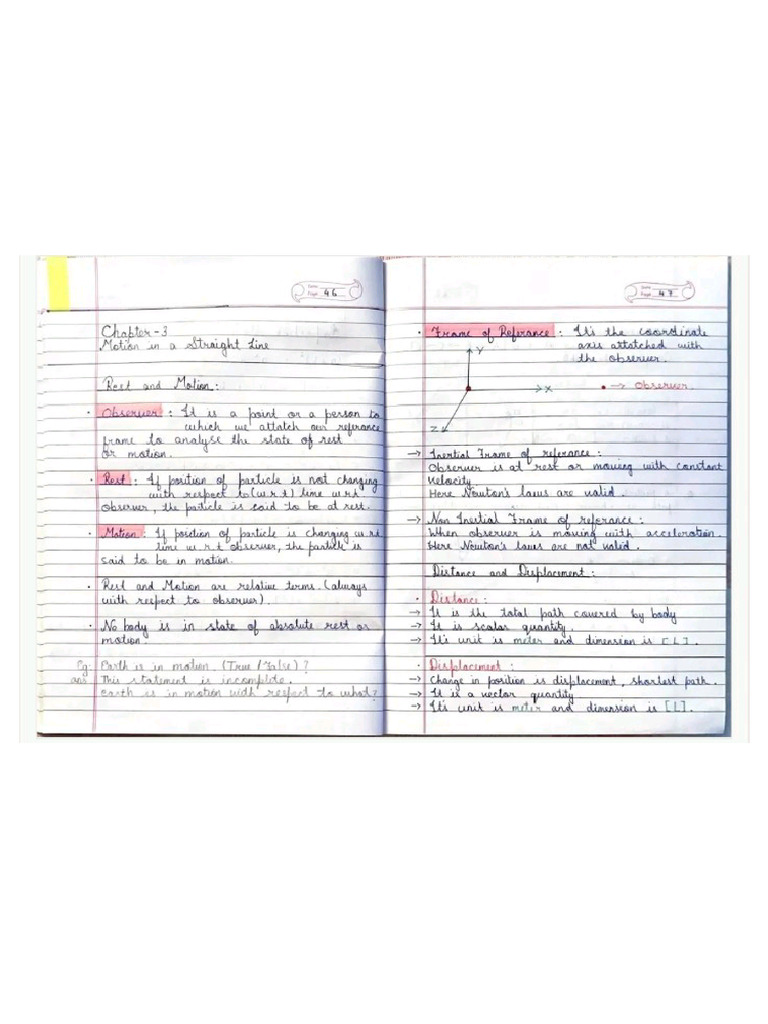 Date
Page 46
Chapter-3
Motion in a Straight Line
Rest and Motion:
· Observer : It is a point or a person to
which we attatch our referance
frame to analyse the state of rest
or motion.
· Rest : If position of particle is not changing
with respect to (w.r.t) time w.r.t
observer, the particle is said to be at rest.
· Motion : If position of particle is changing w.r.t
time w.r.t observer, the particle is
said to be in motion.
· Rest and Motion are relative terms. (always
with respect to observer).
· No body is in state of absolute rest or
motion.
Eg: Earth is in motion. (True / False) ?
ans: This statement is incomplete.
earth is in motion with respect to what?
Date
Page 47
· Frame of Referance : It's the coordinate
axis attatched with
the observer.
Y
X
→ Observer
Z
→ Inertial Frame of referance :
Observer is at rest or moving with constant
velocity
Here Newton's laws are valid.
→ Non Inertial Frame of referance :
When observer is moving with acceleration.
Here Newton's laws are not valid.
Distance and Displacement :
· Distance :
→ It is the total path covered by body
→ It is scalar quantity.
→ It's unit is meter and dimension is [L].
· Displacement :
→ Change in position is displacement, shortest path.
→ It is a vector quantity
→ It's unit is meter and dimension is [L].